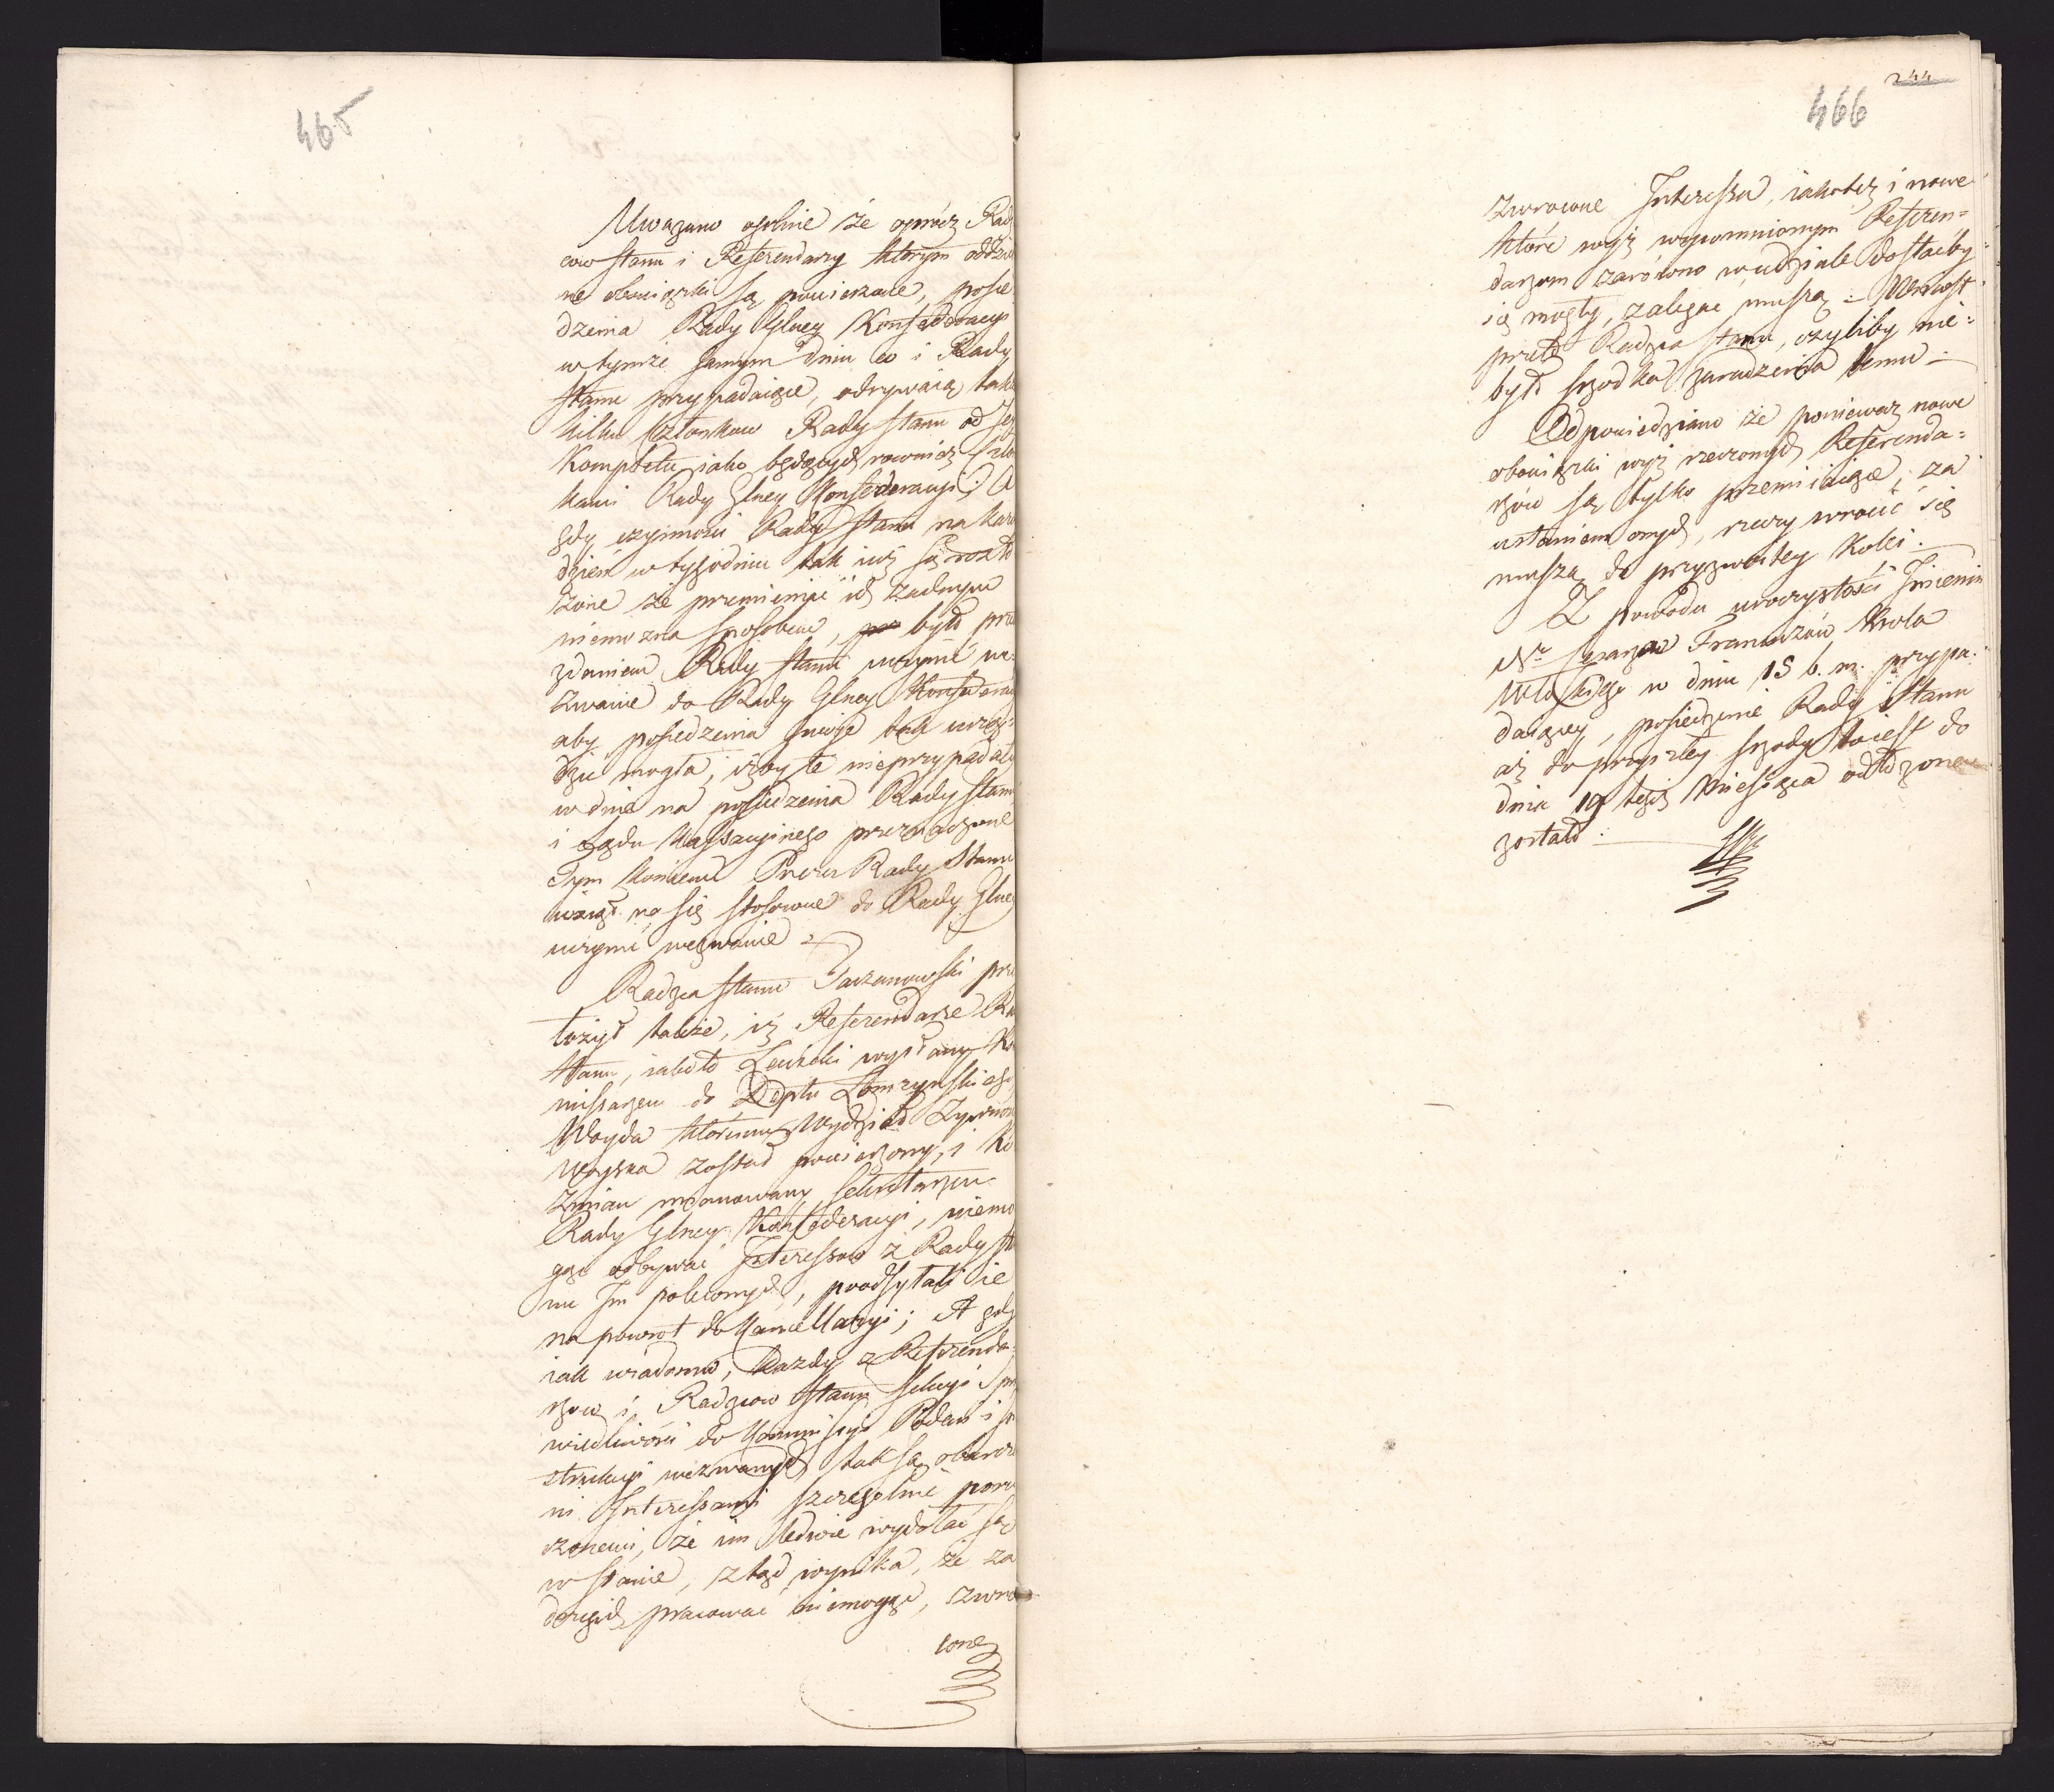 465
Uwagano ogolnie że oprócz Rad
cow stanu i Referendarzy którym oddziel
ne obowiązki są powierzone, posie
dzenia Rady Glney Konfederacyi
w tymże samym dniu co i Rady
stanu przypadaiące, odrywaią tak
kilku Członkow Rady stanu od Jey
Kompletu, iako będących rownież Człon
kami Rady Glney Konfederacyi. A
gdy czynności Rady stanu na każ
dzień w tygodniu tak iuż są rozło
żone że przemienić ich żadnym
niemożna sposobem, było prze
zdaniem Rady stanu uczynić we
zwanie do Rady Glney Konfederac
aby posiedzenia swoje tak urzą
dzić mogła, iżby te nieprzypadały
w dnie na posiedzenia Rady stanu
i Sądu Kassacyinego przeznaczone
Tym końcem Prezes Rady Stanu
wziął na się stosowne do Rady Glney
uczynić wezwanie
Radzca stanu Tarzanowski prze
łożył także, iż Referendarze Ra
stanu, iako to Lewicki wysłany Ko
missarzem do Deptu Łomżyńskiego,
Woyda któremu Wydział Żywnoś
Woyska został powierzony, i Ko
źmian mianowany Sekretarzem
Rady Glney Konfederacyi, niemo
gąc odbywać Interessow z Rady sta
nu Im poleconych, poodsyłali ie
na powrot do Kancellaryi; A gdy
iak wiadomo, każdy z Referenda
rzow i Radzcow Stanu Sekcyi Spra
wiedliwości do Kommissyi Podań i In
strukcyi wezwanych tak są obarcze
ni Interessami szczegolnie poru
czonemi, że im ledwie wydołać są
w stanie, ztąd wynika, że za
drugich pracować niemogąc, zwro
cone
244
466
zwrocone Interessa, iakoteż i nowe
które wyż wspomnionym Referen=
darzom zarówno w udziale dostać by
się mogły, zalegać muszą. Wniosł
przeto Radzca stanu, czyliby nie=
było srzodka zaradzenia temu.
Odpowiedziano że ponieważ nowe
obowiązki wyż rzeczonych Referenda=
rzów są tylko przemiiaiące, za
ustaniem onych, rzeczy wrocić się
muszą do przyzwoitey kolei.
Z powodu uroczystości Imienin
N° Cesarza Francuzów Krola
Włoskiego w dniu 15 b. m. przypa=
daiącey, posiedzenie Rady Stanu
aż do przyszłey srzody to iest do
dnia 19 tegoż Miesiąca odłożone
zostało.